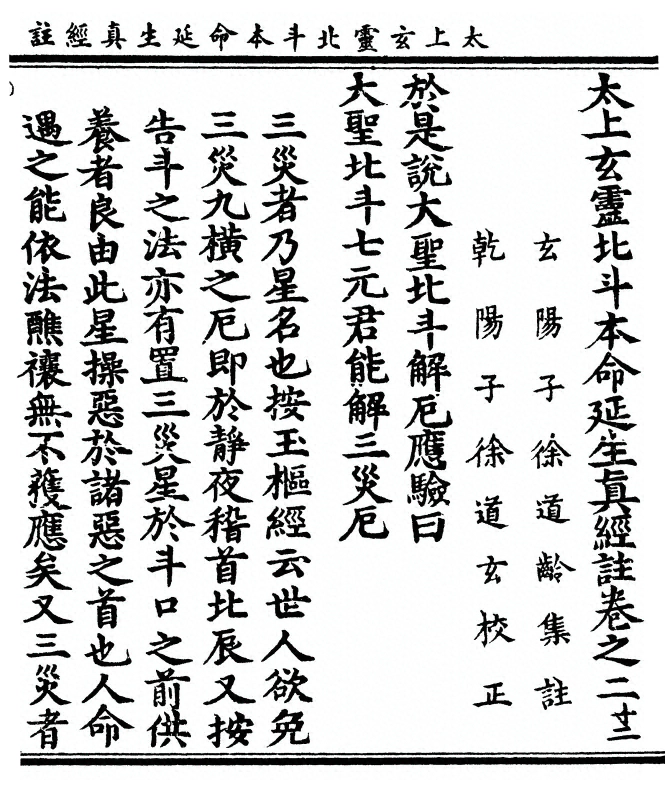 太上玄靈北斗本命延生真經註
太上玄靈北斗本命延生真經註卷之二 寸二
玄陽子徐道齡集註
乾陽子徐道玄校正
於是說大聖北斗解厄應驗曰
大聖北斗七元君能解三災厄
三災者乃星名也按玉樞經云世人欲免
三災九橫之厄即於靜夜稽首北辰又按
告斗之法亦有置三災星於斗口之前供
養者良由此星操惡於諸惡之首也人命
遇之能依法醮禳無不獲應矣又三災者